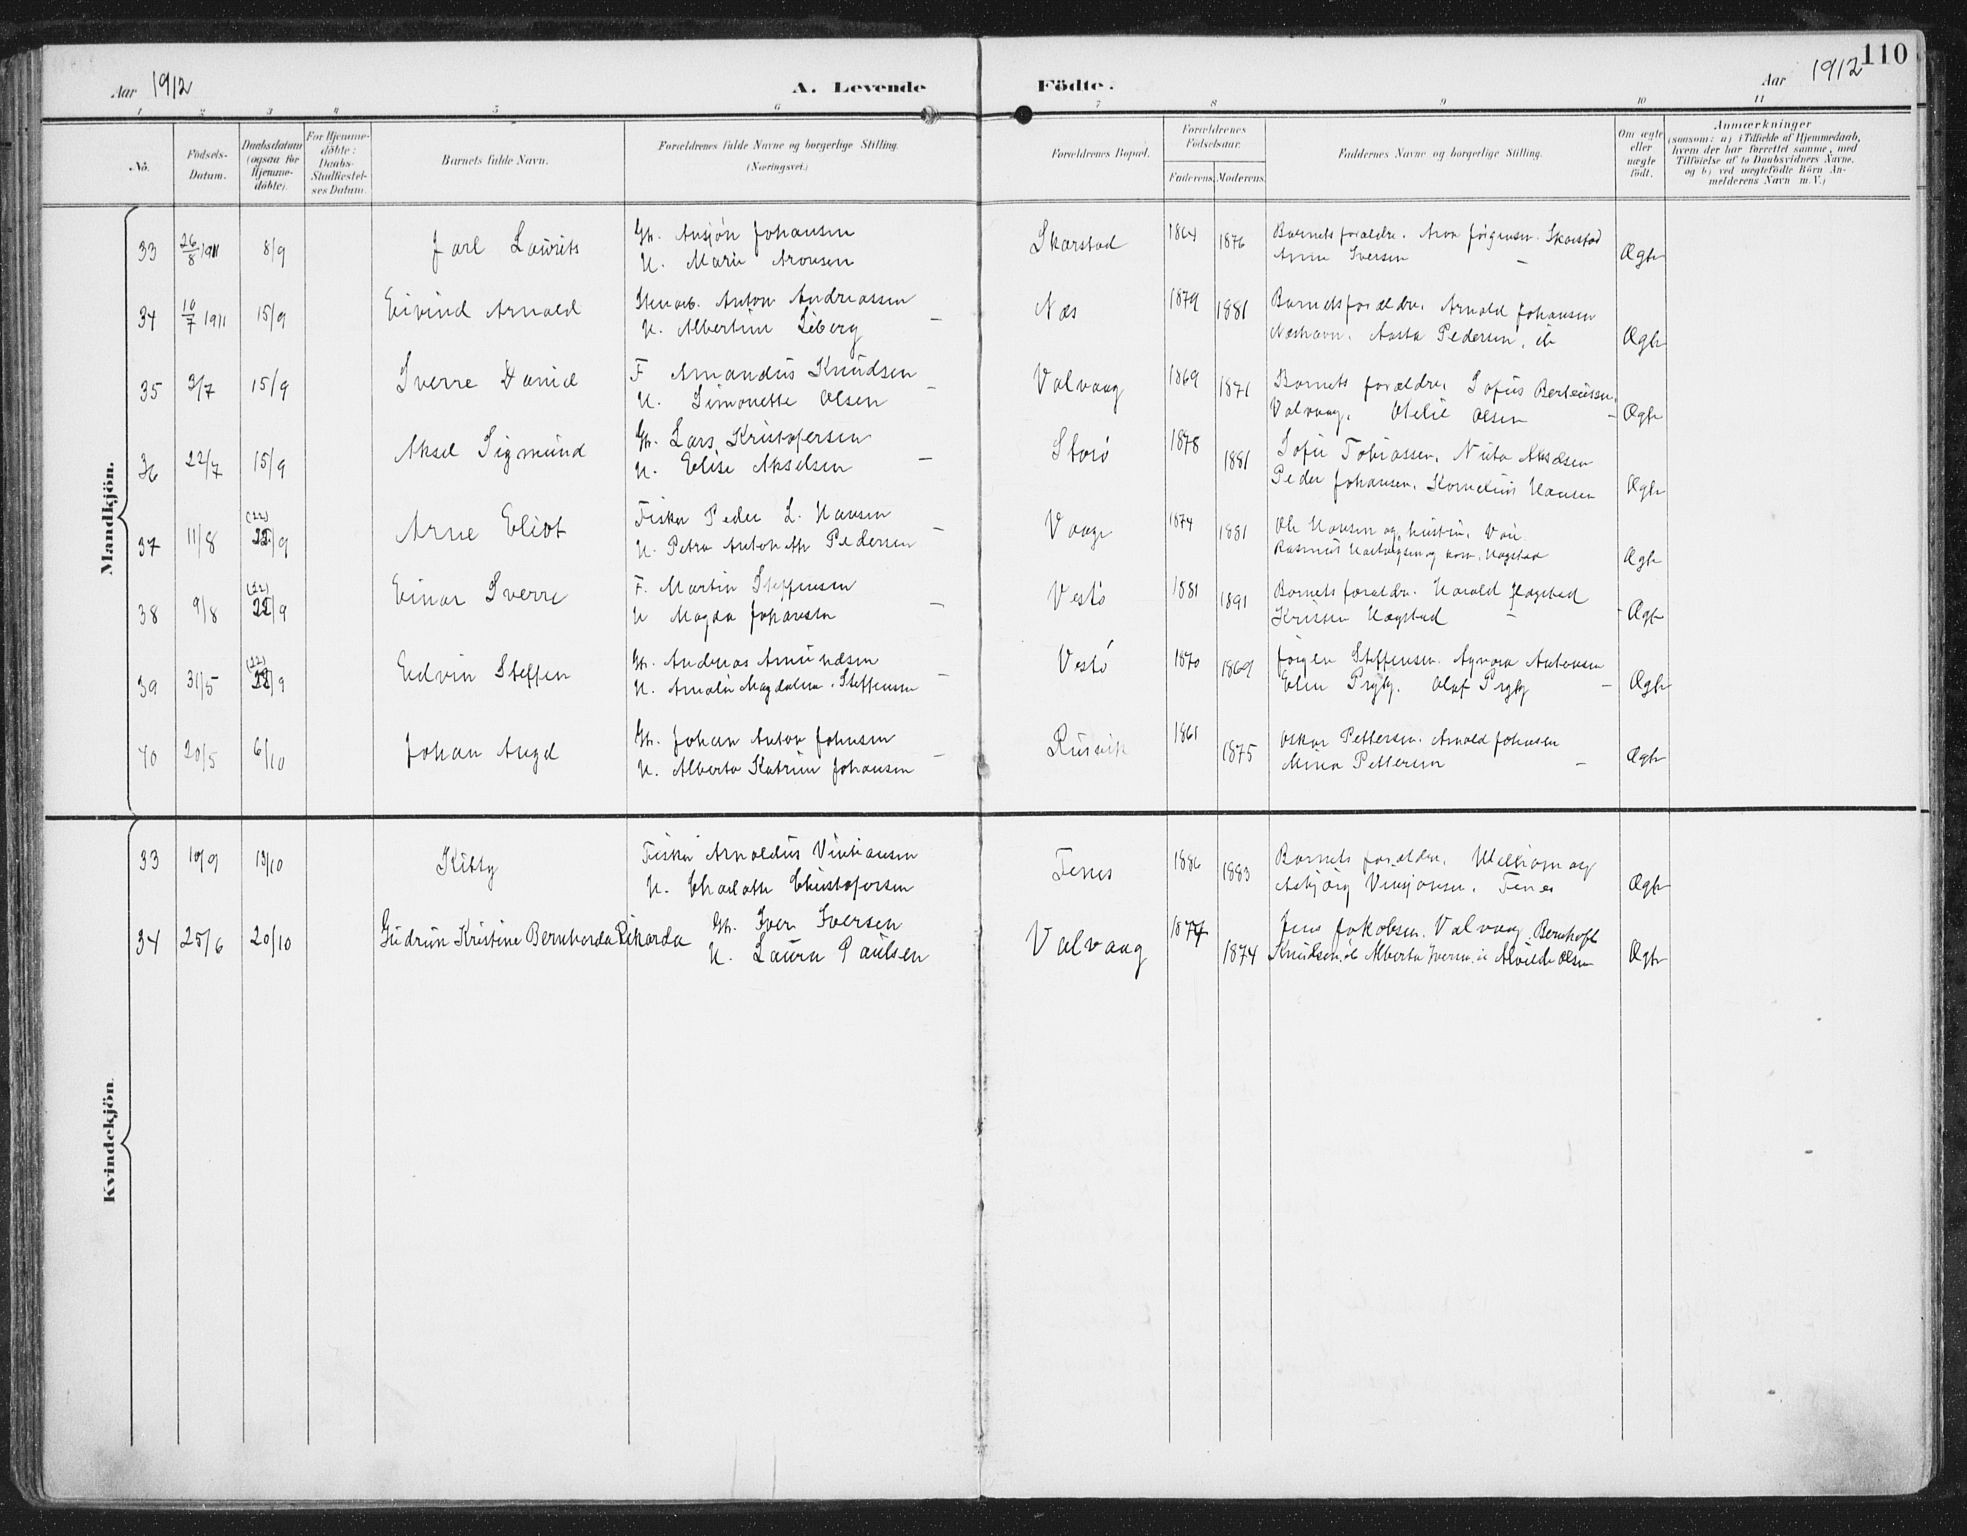 Aar 1912
A. Levende Födte.
Aar 1912
110
1 2 3 4 5 6 7 8 9 10 11
No.
Födsels-Datum.
Daabsdatum (ogsaa for Hjemme-döbte).
For Hjemme-döbte: Daabs-Stadfæstel-ses Datum.
Barnets fulde Navn.
Forældrenes fulde Navne og borgerlige Stilling.
(Næringsvei.)
Forældrenes Bopæl.
Forældrenes Födselsaar.
Faderens. Moderens.
Faddernes Navne og borgerlige Stilling.
Om ægte eller uægte födt.
Anmærkninger
(saasom: a) i Tilfælde af Hjemmedaab,
hvem der har forrettet samme, med
Tilföielse af to Daabsvidners Navne,
og b) ved uægtefödte Börn An-
melderens Navn m. V.)
Mandkjön.
33 26/8 1911 8/9 Jarl Laurits Gb. Ansjön Johansen Skarstad 1864 1876 Barnets forældre. Aron Jörgensen. Skarstad Ægte
H. Marie Aronsen Anne Iversen
34 10/7 1911 15/9 Eivind Arnold Anton Andreassen Næs 1879 1881 Barnets forældre. Arnold Johansen Ægte
H. Albertine Seberg Næshavn. Aasta Pedersen, ib
35 3/7 15/9 Sverre Daniel F Amandus Knudsen Valvaag 1869 1871 Barnets forældre. Sofus Berteussen. Ægte
H. Simonette Olsen Valvaag. Otelie Olsen
36 22/7 15/9 Aksel Sigmund Gb. Lars Kristofersen Storö 1878 1881 Sofie Tobiassen. Akselsen Ægte
H. Elise Akselsen Peder Johansen. Kornelius Hansen
37 11/8 (22) 22/9 Arne Eliot Fisker Peder L. Hansen Vaage 1874 1881 Ole Hansen og hustru. Ægte
H. Petra Antonette Pedersen Rasmus og kone. Hagstad
38 9/8 (22) 22/9 Einar Sverre F. Martin Steffensen Vestö 1881 1891 Barnets forældre. Harald Hagstad Ægte
H Magda Johansen Kristen Hagstad
39 31/5 (22) 22/9 Edvin Steffen Gb. Andreas Amundsen Vestö 1870 1869 Jörgen Steffensen. Agnora Antonsen Ægte
H. Amalie Magdalena Steffensen Elen Prytz. Olaf Prytz
40 20/5 6/10 Johan Angel Gb. Johan Anton Johnsen Rusvik 1861 1875 Oskar Pettersen. Arnold Johansen Ægte
H. Alberta Katrine Johansen Mina Pettersen
Kvindekjön.
33 10/9 13/10 Kitty Fisker Arnoldus Vintiansen Fenes 1886 1883 Barnets forældre. William og Ægte
H. Charlotte Christofersen Asbjörg Vinsjansen. Fenes
34 25/6 20/10 Gudrun Kristine Bernharda Rikarda Gb. Iver Iversen Valvaag 1874 1874 Jens Jakobsen. Valvaag. Bernhoft Ægte
H. Laura Paulsen Knudsen. ib Alberta Iversen. ib Alvilde Olsen